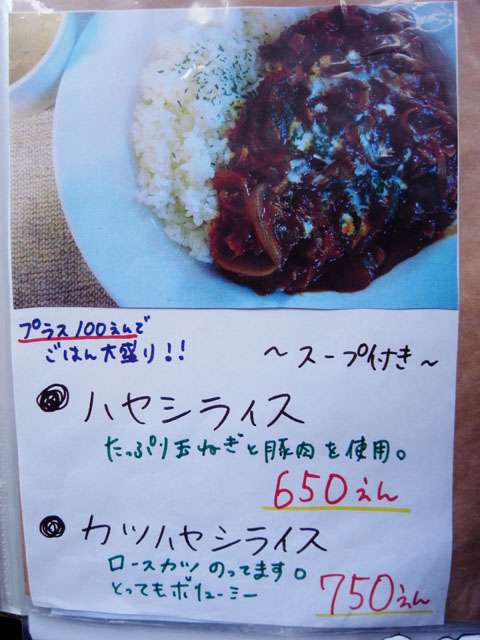 プラス100えんで
ごはん大盛り!!
〜スープ付き〜
ハヤシライス
たっぷり玉ねぎと豚肉を使用。
650えん
カツハヤシライス
ロースカツのってます。
とってもボリューミー
750えん